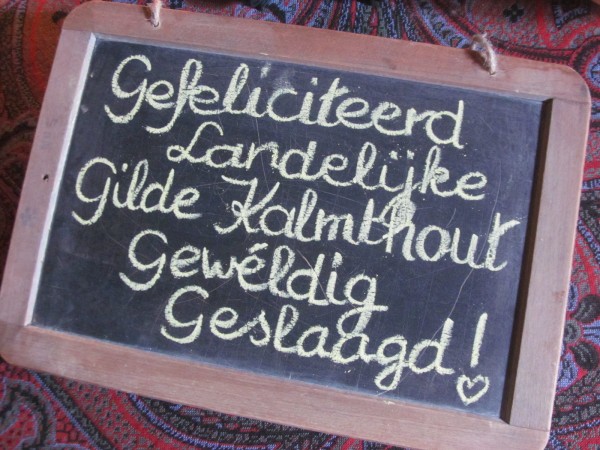 Gefeliciteerd
Landelijke
Gilde Kalmthout
Gewéldig
Geslaagd!